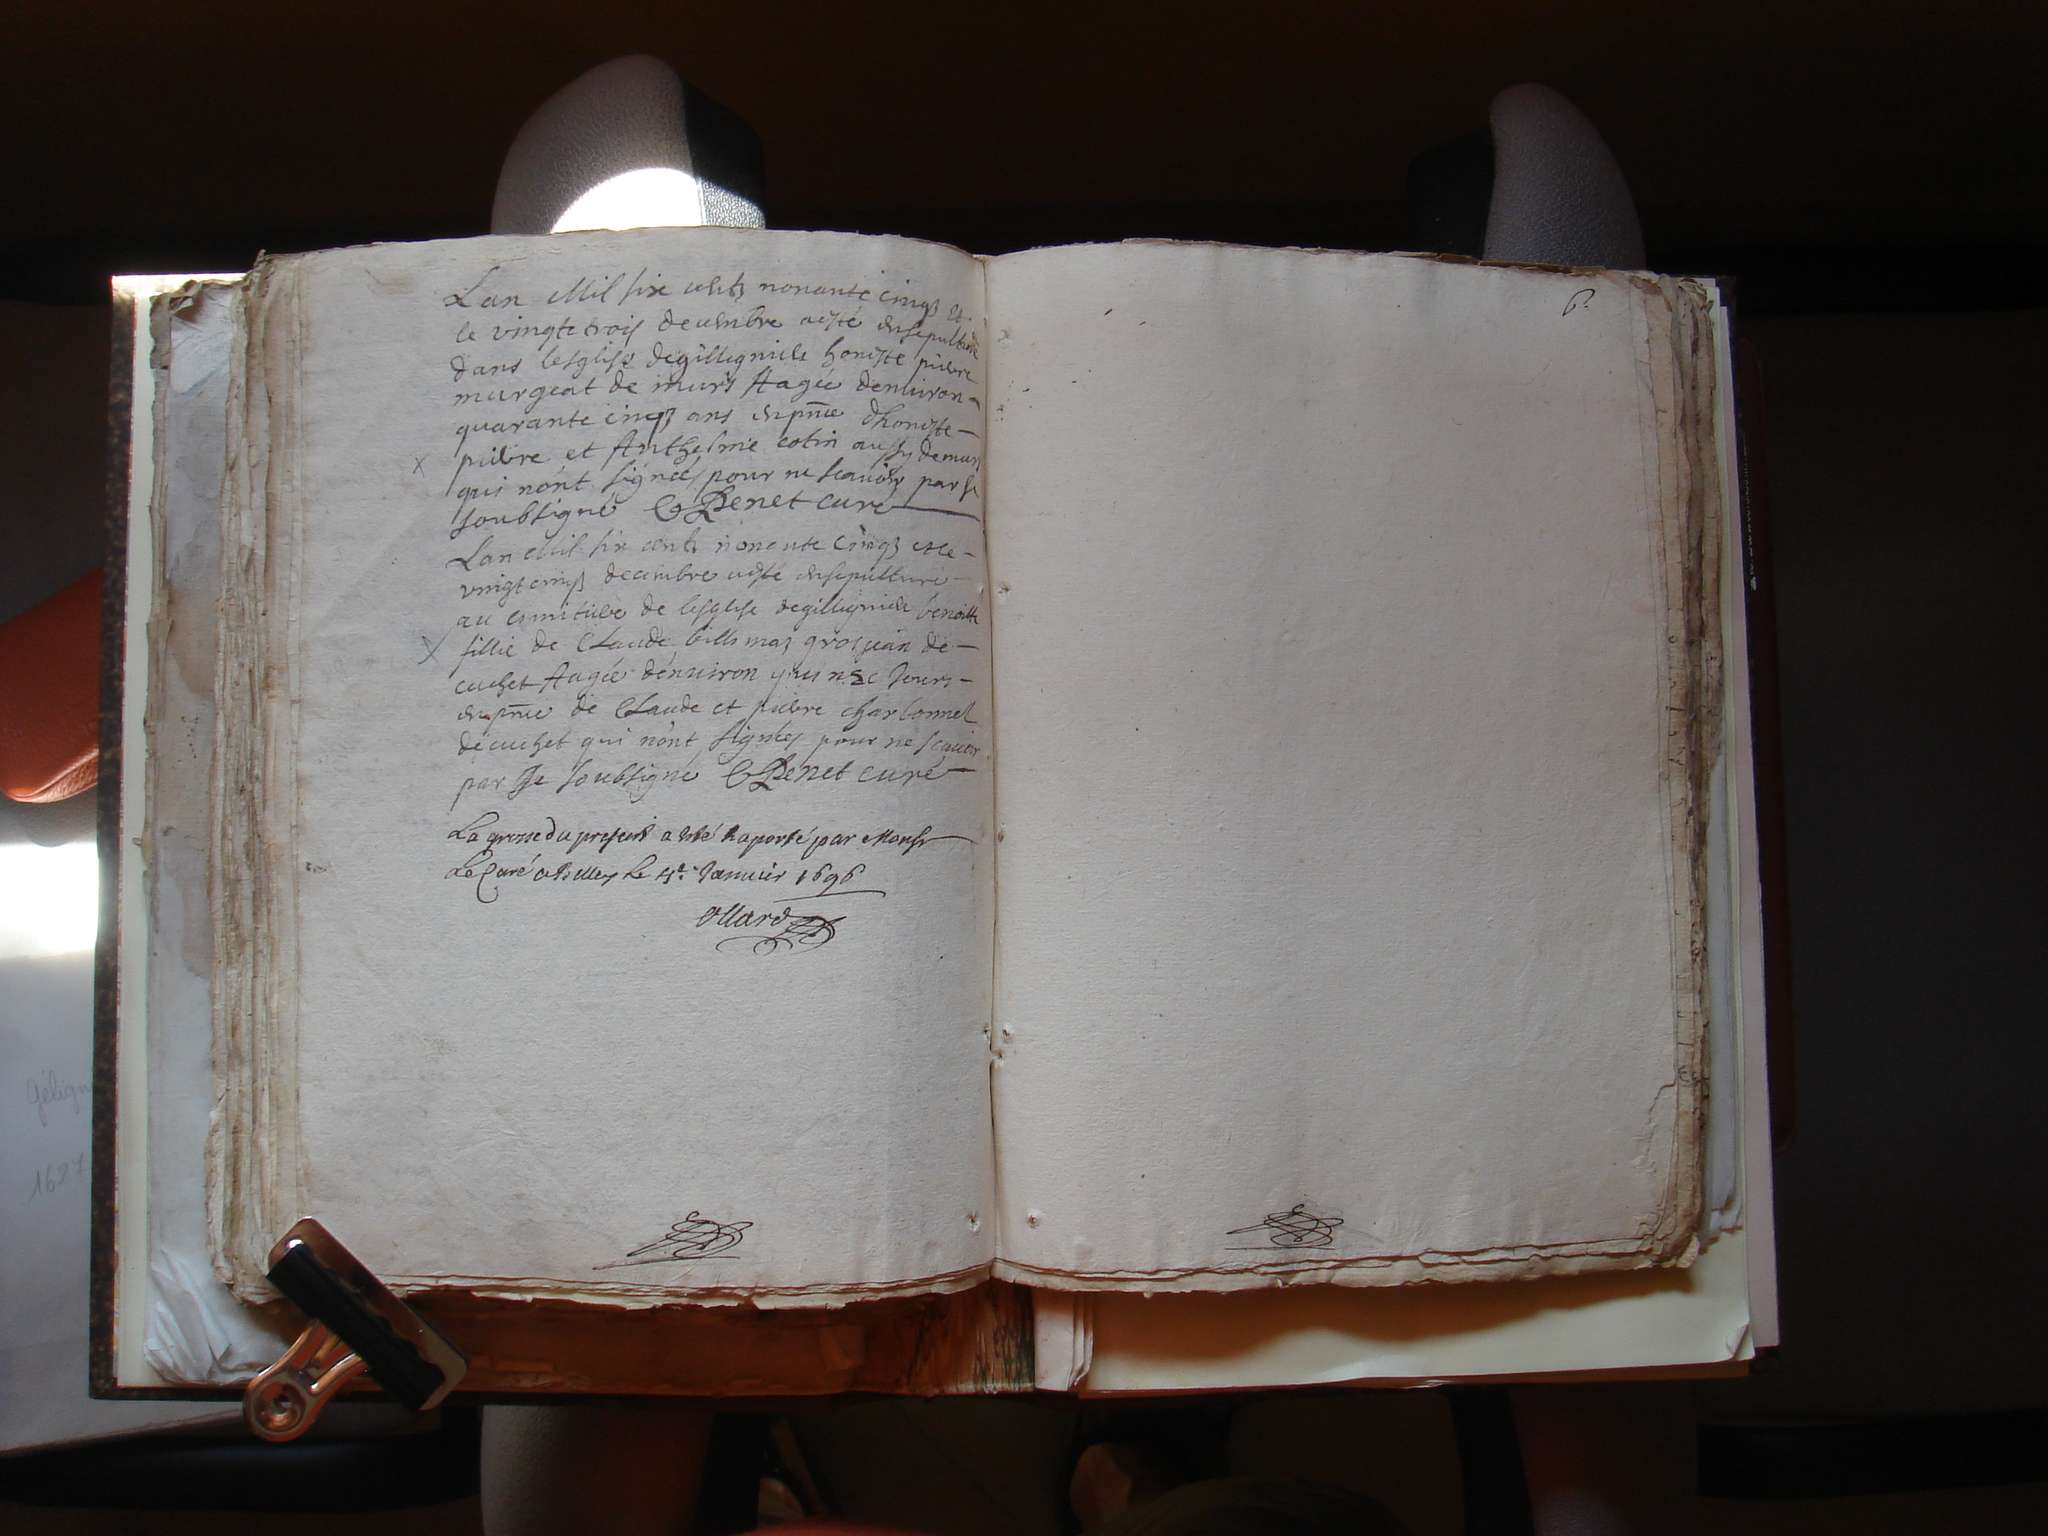 Lan Mil six cents nonante cinq et
le vingt trois decembre a esté ensepulture
dans lesglise de gillignieu honeste pierre
murgeat de murs Aagée denuiron
quarante cinq ans en pnce dhoneste
pierre et Anthelme cotin aussy de murs
qui nont signées pour ne scauoir par je
soubsigné Benet curé
Lan Mil six cents nonante cinq et le
vingt cinq decembre a esté ensepulture
au cemitiere de lesglise de gillignieu benoitte
fillie de Claude grosjean de
cuchet Aagée denuiron jours
en pnce de Claude et pierre charbonnel
de cuchet qui nont signées pour ne scauoir
par Je soubsigné Benet curé
La grosse du present a esté Raporté par Monsr
Le Curé a Belley Le 4e Januier 1696
ollard
6.
Gélign
1687